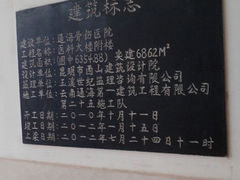 建筑标志
建设单位:通海骨伤医院
工程名称:医科大楼附楼
建筑面积:(图6354.88)实建6862M²
设计单位:昆明市西山建筑设计院
监理单位:玉溪世纪监理咨询有限公司
施工单位:云南通海第一建筑工程有限公司
第二十五施工队
开工日期:二0一0年十月十一日
竣工日期:二0一二年一月十五日
上梁日期:二0一二年七月二十四日十一时